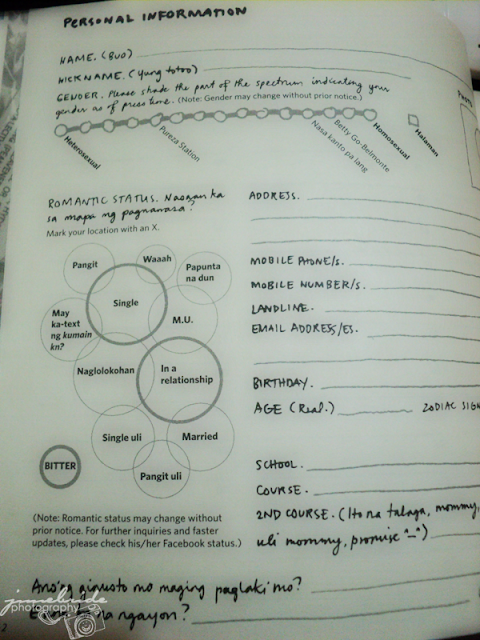 PERSONAL INFORMATION
NAME. (Buo)
NICKNAME. (Yung totoo)
GENDER. Please shade the part of the spectrum indicating your
gender as of press time. (Note: Gender may change without prior notice.)
Heterosexual
Pureza Station
Nasa kanto pa lang
Betty Go-Belmonte
Homosexual
Halaman
ROMANTIC STATUS. Nasaan ka
sa mapa ng pagnanasa?
Mark your location with an X.
Pangit
Waaah
Papunta
na dun
Single
M.U.
May
ka-text
ng kumain
kn?
Naglolokohan
In a
relationship
Single uli
Married
Pangit uli
BITTER
(Note: Romantic status may change without
prior notice. For further inquiries and faster
updates, please check his/her Facebook status.)
ADDRESS.
MOBILE PHONE/s.
MOBILE NUMBER/s.
LANDLINE.
EMAIL ADDRESS/ES.
BIRTHDAY.
AGE (Real.) ZODIAC SIGN
SCHOOL.
COURSE.
2ND COURSE. (Ito na talaga, mommy,
uli mommy, promise ^_^)
Ano'ng ginusto mo maging paglaki mo?
na ngayon?
junebride
photography
2